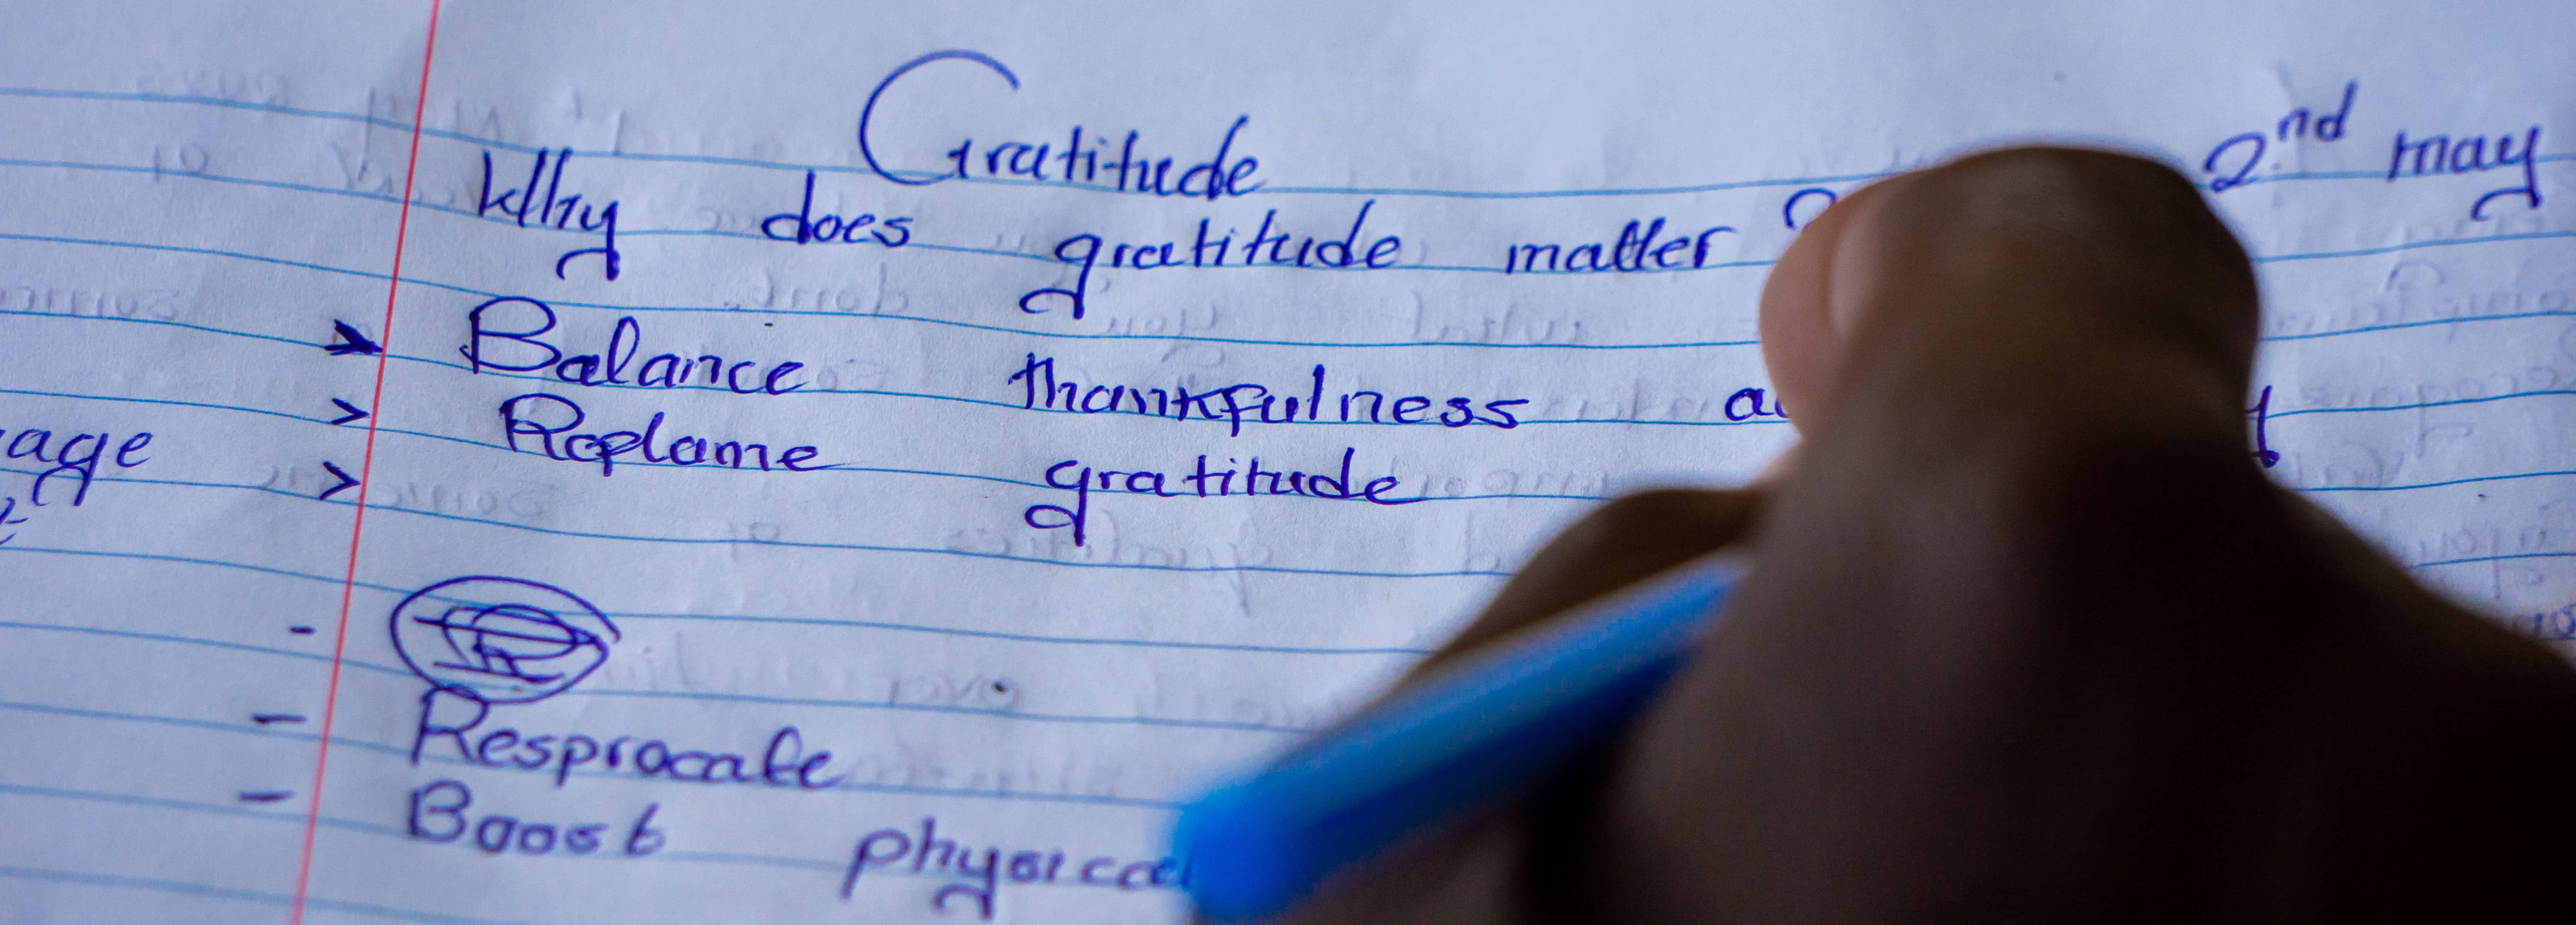 Gratitude 2nd may
Why does gratitude matter ?
Balance thankfulness
Replame gratitude
age
Resprocate
Boost physical